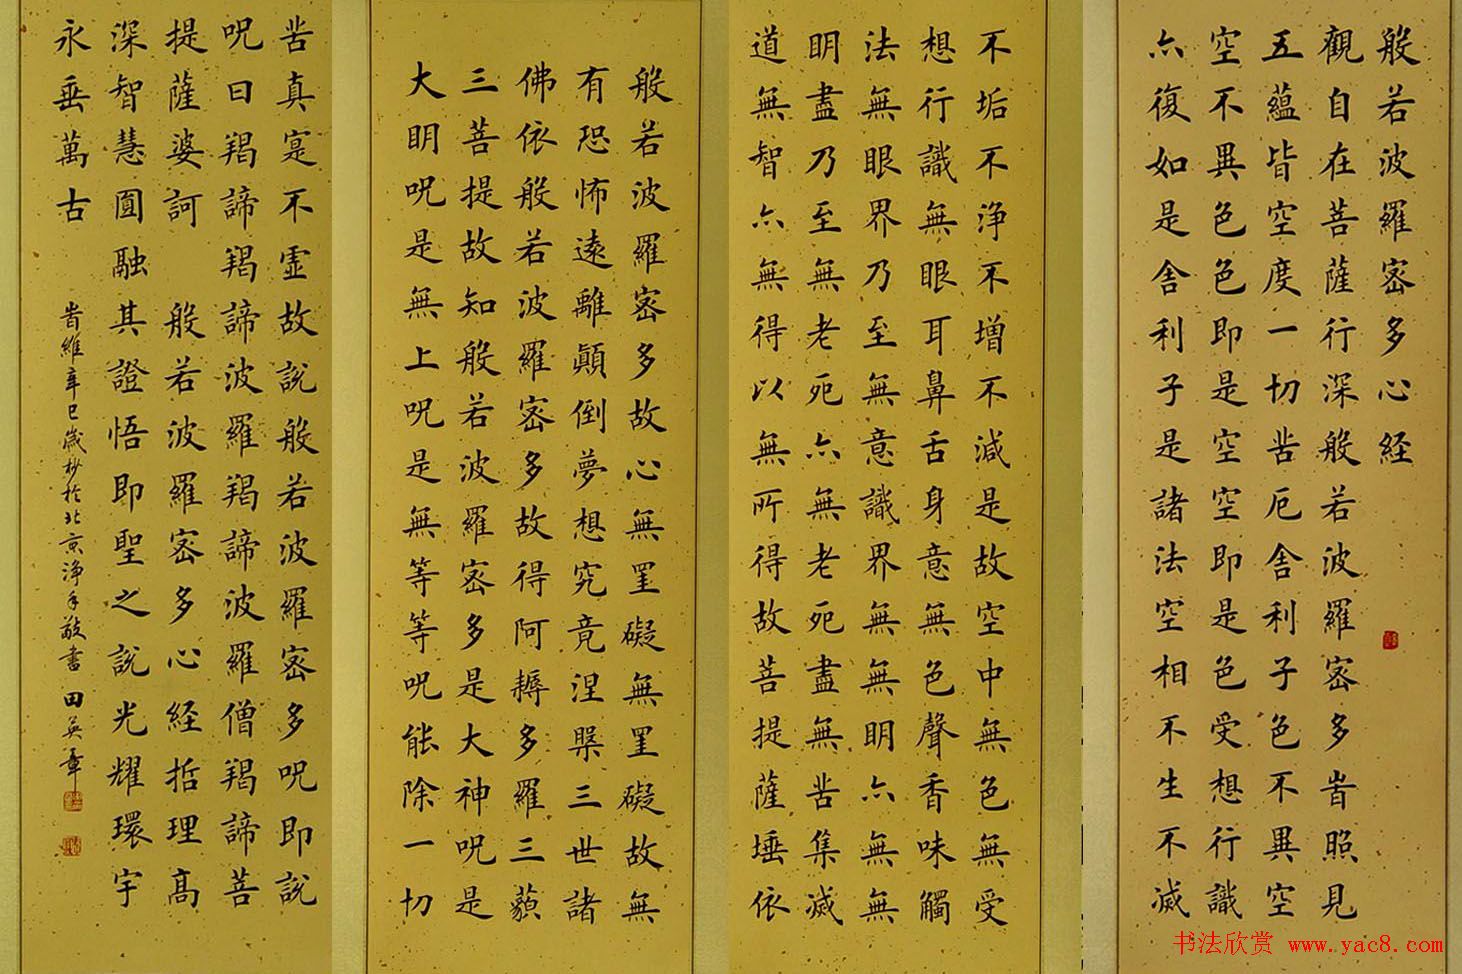 般若波羅密多心経
觀自在菩薩行深般若波羅密多旹照見
五蘊皆空度一切苦厄舍利子色不異空
空不異色色即是空空即是色受想行識
亦復如是舍利子是諸法空相不生不滅
不垢不浄不增不減是故空中無色無受
想行識無眼耳鼻舌身意無色聲香味觸
法無眼界乃至無意識界無無明亦無無
明盡乃至無老死亦無老死盡無苦集滅
道無智亦無得以無所得故菩提薩埵依
般若波羅密多故心無罣礙無罣礙故無
有恐怖遠離顛倒夢想究竟涅槃三世諸
佛依般若波羅密多故得阿耨多羅三藐
三菩提故知般若波羅密多是大神呪是
大明呪是無上呪是無等等呪能除一切
苦真寔不虛故說般若波羅密多呪即說
呪曰羯諦羯諦波羅羯諦波羅僧羯諦菩
提薩婆訶 般若波羅密多心経哲理高
深智慧圓融其證悟即聖之說光耀環宇
永垂萬古
旹維辛巳歲杪於北京浄手敬書 田英章
书法欣赏 www.yac8.com